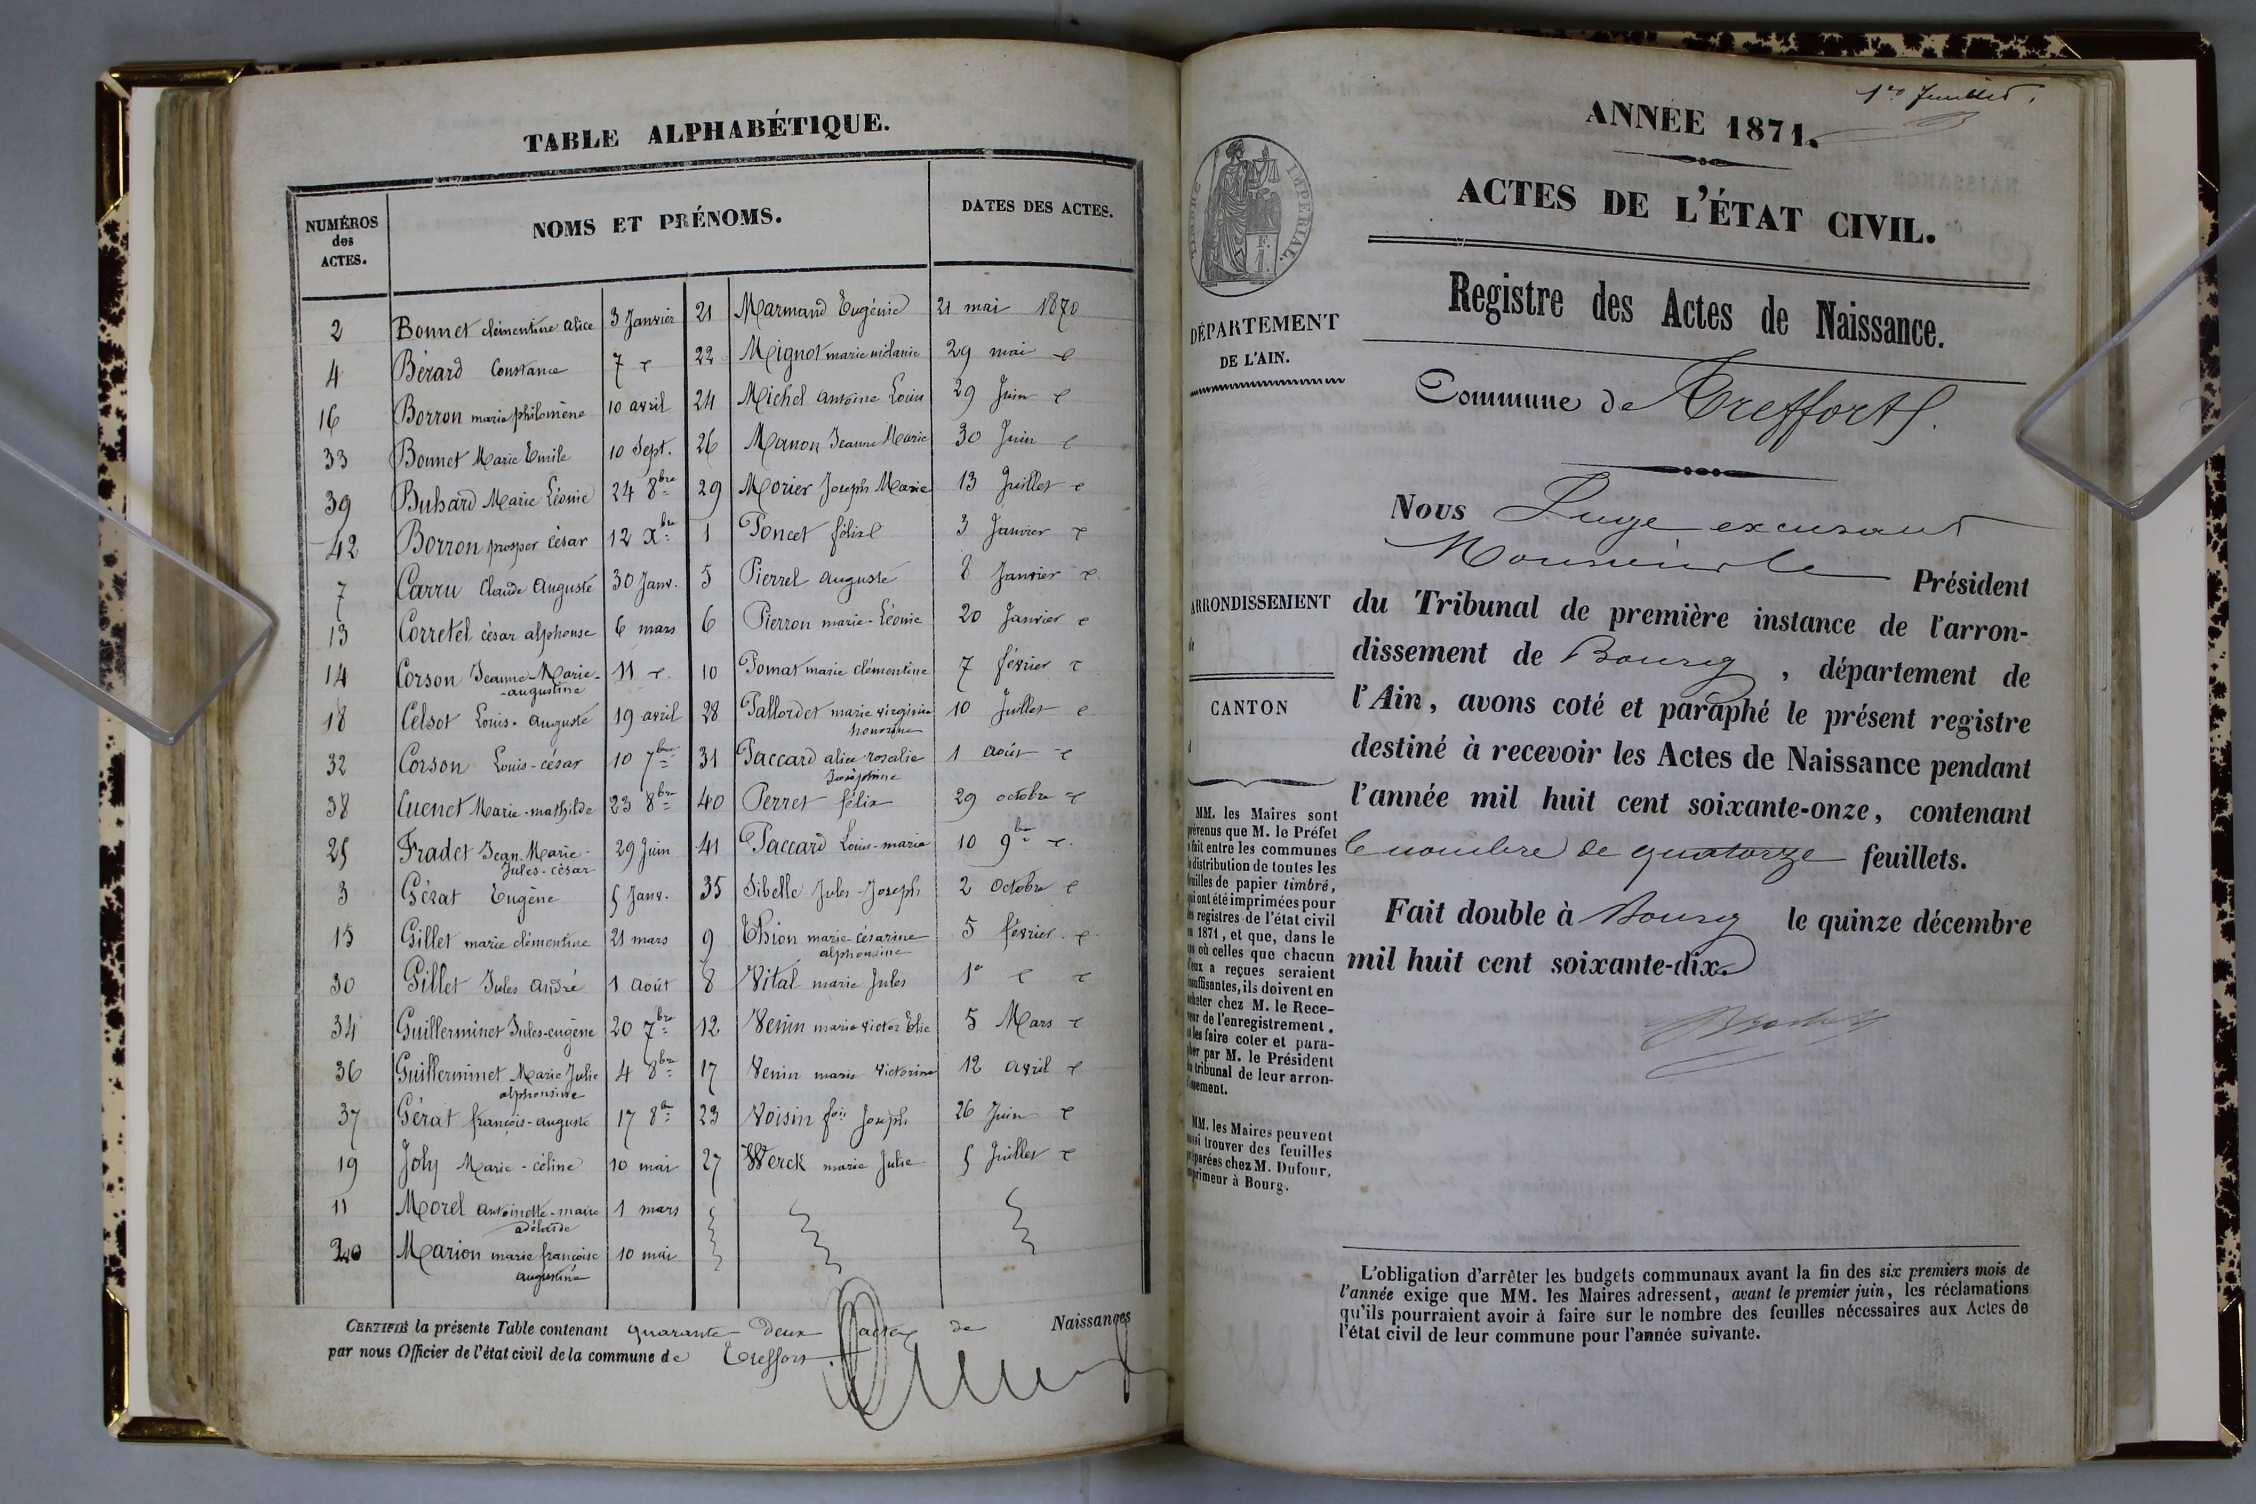 TABLE ALPHABÉTIQUE.
NUMÉROS des ACTES.
NOMS ET PRÉNOMS.
DATES DES ACTES.
2 Bonnet clémentine alice 3 Janvier
4 Bérard Constance 7
16 Borron marie philomène 10 avril
33 Bonnet Marie Emile 10 Sept.
39 Buhard Marie Léonie 24 8bre
42 Borron prosper césar 12 Xbre
7 Carru Claude Auguste 30 Janv.
13 Corretel césar alphonse 6 mars
14 Corson Jeanne-Marie-
-augustine 11
18 Celsot Louis-Auguste 19 avril
32 Corson Louis-césar 10 7bre
38 Cuenet Marie-mathilde 23 8bre
25 Fradet Jean-Marie-
Jules-césar 29 Juin
3 Gérat Eugène 5 Janv.
15 Gillet marie clémentine 21 mars
30 Gillet Jules André 1 août
34 Guillerminet Jules-eugène 20 7bre
36 Guillerminet Marie Julie
alphonsine 4 8bre
37 Gérat françois-auguste 17 8bre
19 Joly Marie-céline 10 mai
11 Morel Antoinette-marie
adélaïde 1 mars
20 Marion marie françoise
augustine 10 mai
21 Marmand Eugénie 21 mai 1870
22 Mignot marie mélanie 29 mai
24 Michel Antoine Louis 29 Juin
26 Manon Jeanne Marie 30 Juin
29 Morier Joseph Marie 13 Juillet
1 Poncet félix 3 Janvier
5 Pierrel auguste 8 Janvier
6 Pierron marie-Léonie 20 Janvier
10 Pomat marie clémentine 7 février
28 Pallordet marie virginie
honorine 10 Juillet
31 Paccard alice rosalie
Joséphine 1 août
40 Perret félix 29 octobre
41 Paccard Louis-marie 10 9bre
35 Sibelle Jules-Joseph 2 Octobre
9 Thion marie-césarine
alphonsine 5 février
8 Vital marie Jules 1er
12 Venin marie victor Elie 5 Mars
17 Venin marie Victorine 12 avril
23 Voisin fois Joseph 26 Juin
27 Werck marie Julie 5 Juillet
CERTIFIÉ la présente Table contenant quarante deux actes de Naissances
par nous Officier de l'état civil de la commune de Treffort.
1er feuillet.
ANNÉE 1871.
ACTES DE L'ÉTAT CIVIL.
TIMBRE IMPÉRIAL.
Registre des Actes de Naissance.
DÉPARTEMENT
DE L'AIN.
Commune de Treffort.
Nous Juge excusant
Monsieur le Président
ARRONDISSEMENT
du Tribunal de première instance de l'arron-
dissement de Bourg, département de
CANTON
l'Ain, avons coté et paraphé le présent registre
destiné à recevoir les Actes de Naissance pendant
l'année mil huit cent soixante-onze, contenant
le nombre de quatorze feuillets.
Fait double à Bourg le quinze décembre
mil huit cent soixante-dix.
MM. les Maires sont
prévenus que M. le Préfet
a fait entre les communes
la distribution de toutes les
feuilles de papier timbré,
qui ont été imprimées pour
les registres de l'état civil
en 1871, et que, dans le
cas où celles que chacun
d'eux a reçues seraient
insuffisantes, ils doivent en
acheter chez M. le Rece-
veur de l'enregistrement,
et les faire coter et para-
pher par M. le Président
du tribunal de leur arron-
dissement.
MM. les Maires peuvent
aussi trouver des feuilles
préparées chez M. Dufour,
imprimeur à Bourg.
L'obligation d'arrêter les budgets communaux avant la fin des six premiers mois de
l'année exige que MM. les Maires adressent, avant le premier juin, les réclamations
qu'ils pourraient avoir à faire sur le nombre des feuilles nécessaires aux Actes de
l'état civil de leur commune pour l'année suivante.